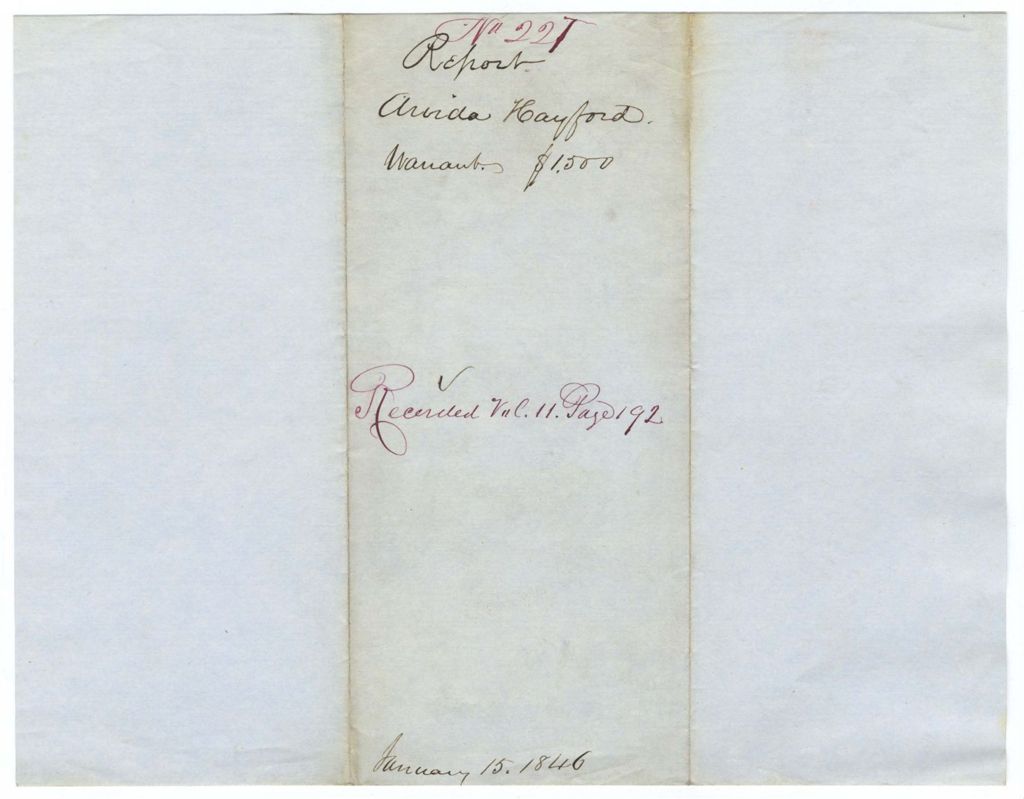 No 227
Report
Arvida Hayford.
Warrant. $1,500
Recorded Vol. 11. Page 192
January 15. 1846